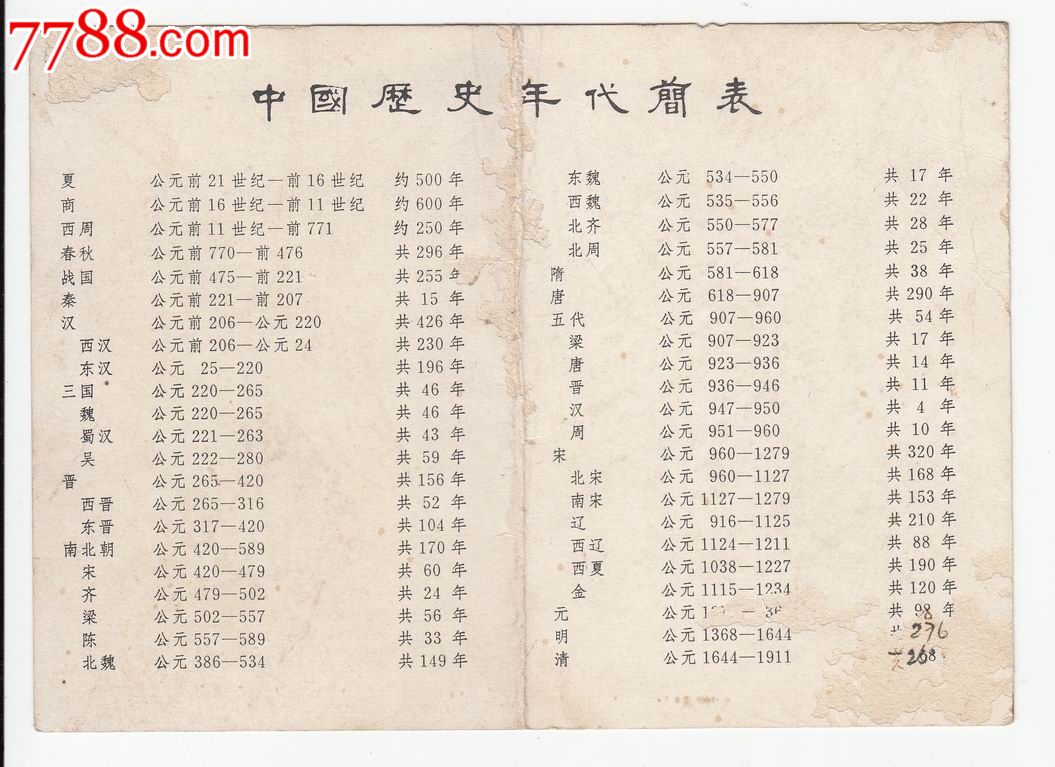 7788.com
中國歷史年代簡表
夏 公元前21世纪—前16世纪 约500年
商 公元前16世纪—前11世纪 约600年
西周 公元前11世纪—前771 约250年
春秋 公元前770—前476 共296年
战国 公元前475—前221 共255年
秦 公元前221—前207 共15年
汉 公元前206—公元220 共426年
西汉 公元前206—公元24 共230年
东汉 公元 25—220 共196年
三国 公元220—265 共46年
魏 公元220—265 共46年
蜀汉 公元221—263 共43年
吴 公元222—280 共59年
晋 公元265—420 共156年
西晋 公元265—316 共52年
东晋 公元317—420 共104年
南北朝 公元420—589 共170年
宋 公元420—479 共60年
齐 公元479—502 共24年
梁 公元502—557 共56年
陈 公元557—589 共33年
北魏 公元386—534 共149年
东魏 公元 534—550 共17年
西魏 公元 535—556 共22年
北齐 公元 550—577 共28年
北周 公元 557—581 共25年
隋 公元 581—618 共38年
唐 公元 618—907 共290年
五代 公元 907—960 共54年
梁 公元 907—923 共17年
唐 公元 923—936 共14年
晋 公元 936—946 共11年
汉 公元 947—950 共4年
周 公元 951—960 共10年
宋 公元 960—1279 共320年
北宋 公元 960—1127 共168年
南宋 公元1127—1279 共153年
辽 公元 916—1125 共210年
西辽 公元1124—1211 共88年
西夏 公元1038—1227 共190年
金 公元1115—1234 共120年
元 公元 共98年
明 公元1368—1644 共276
清 公元1644—1911 268